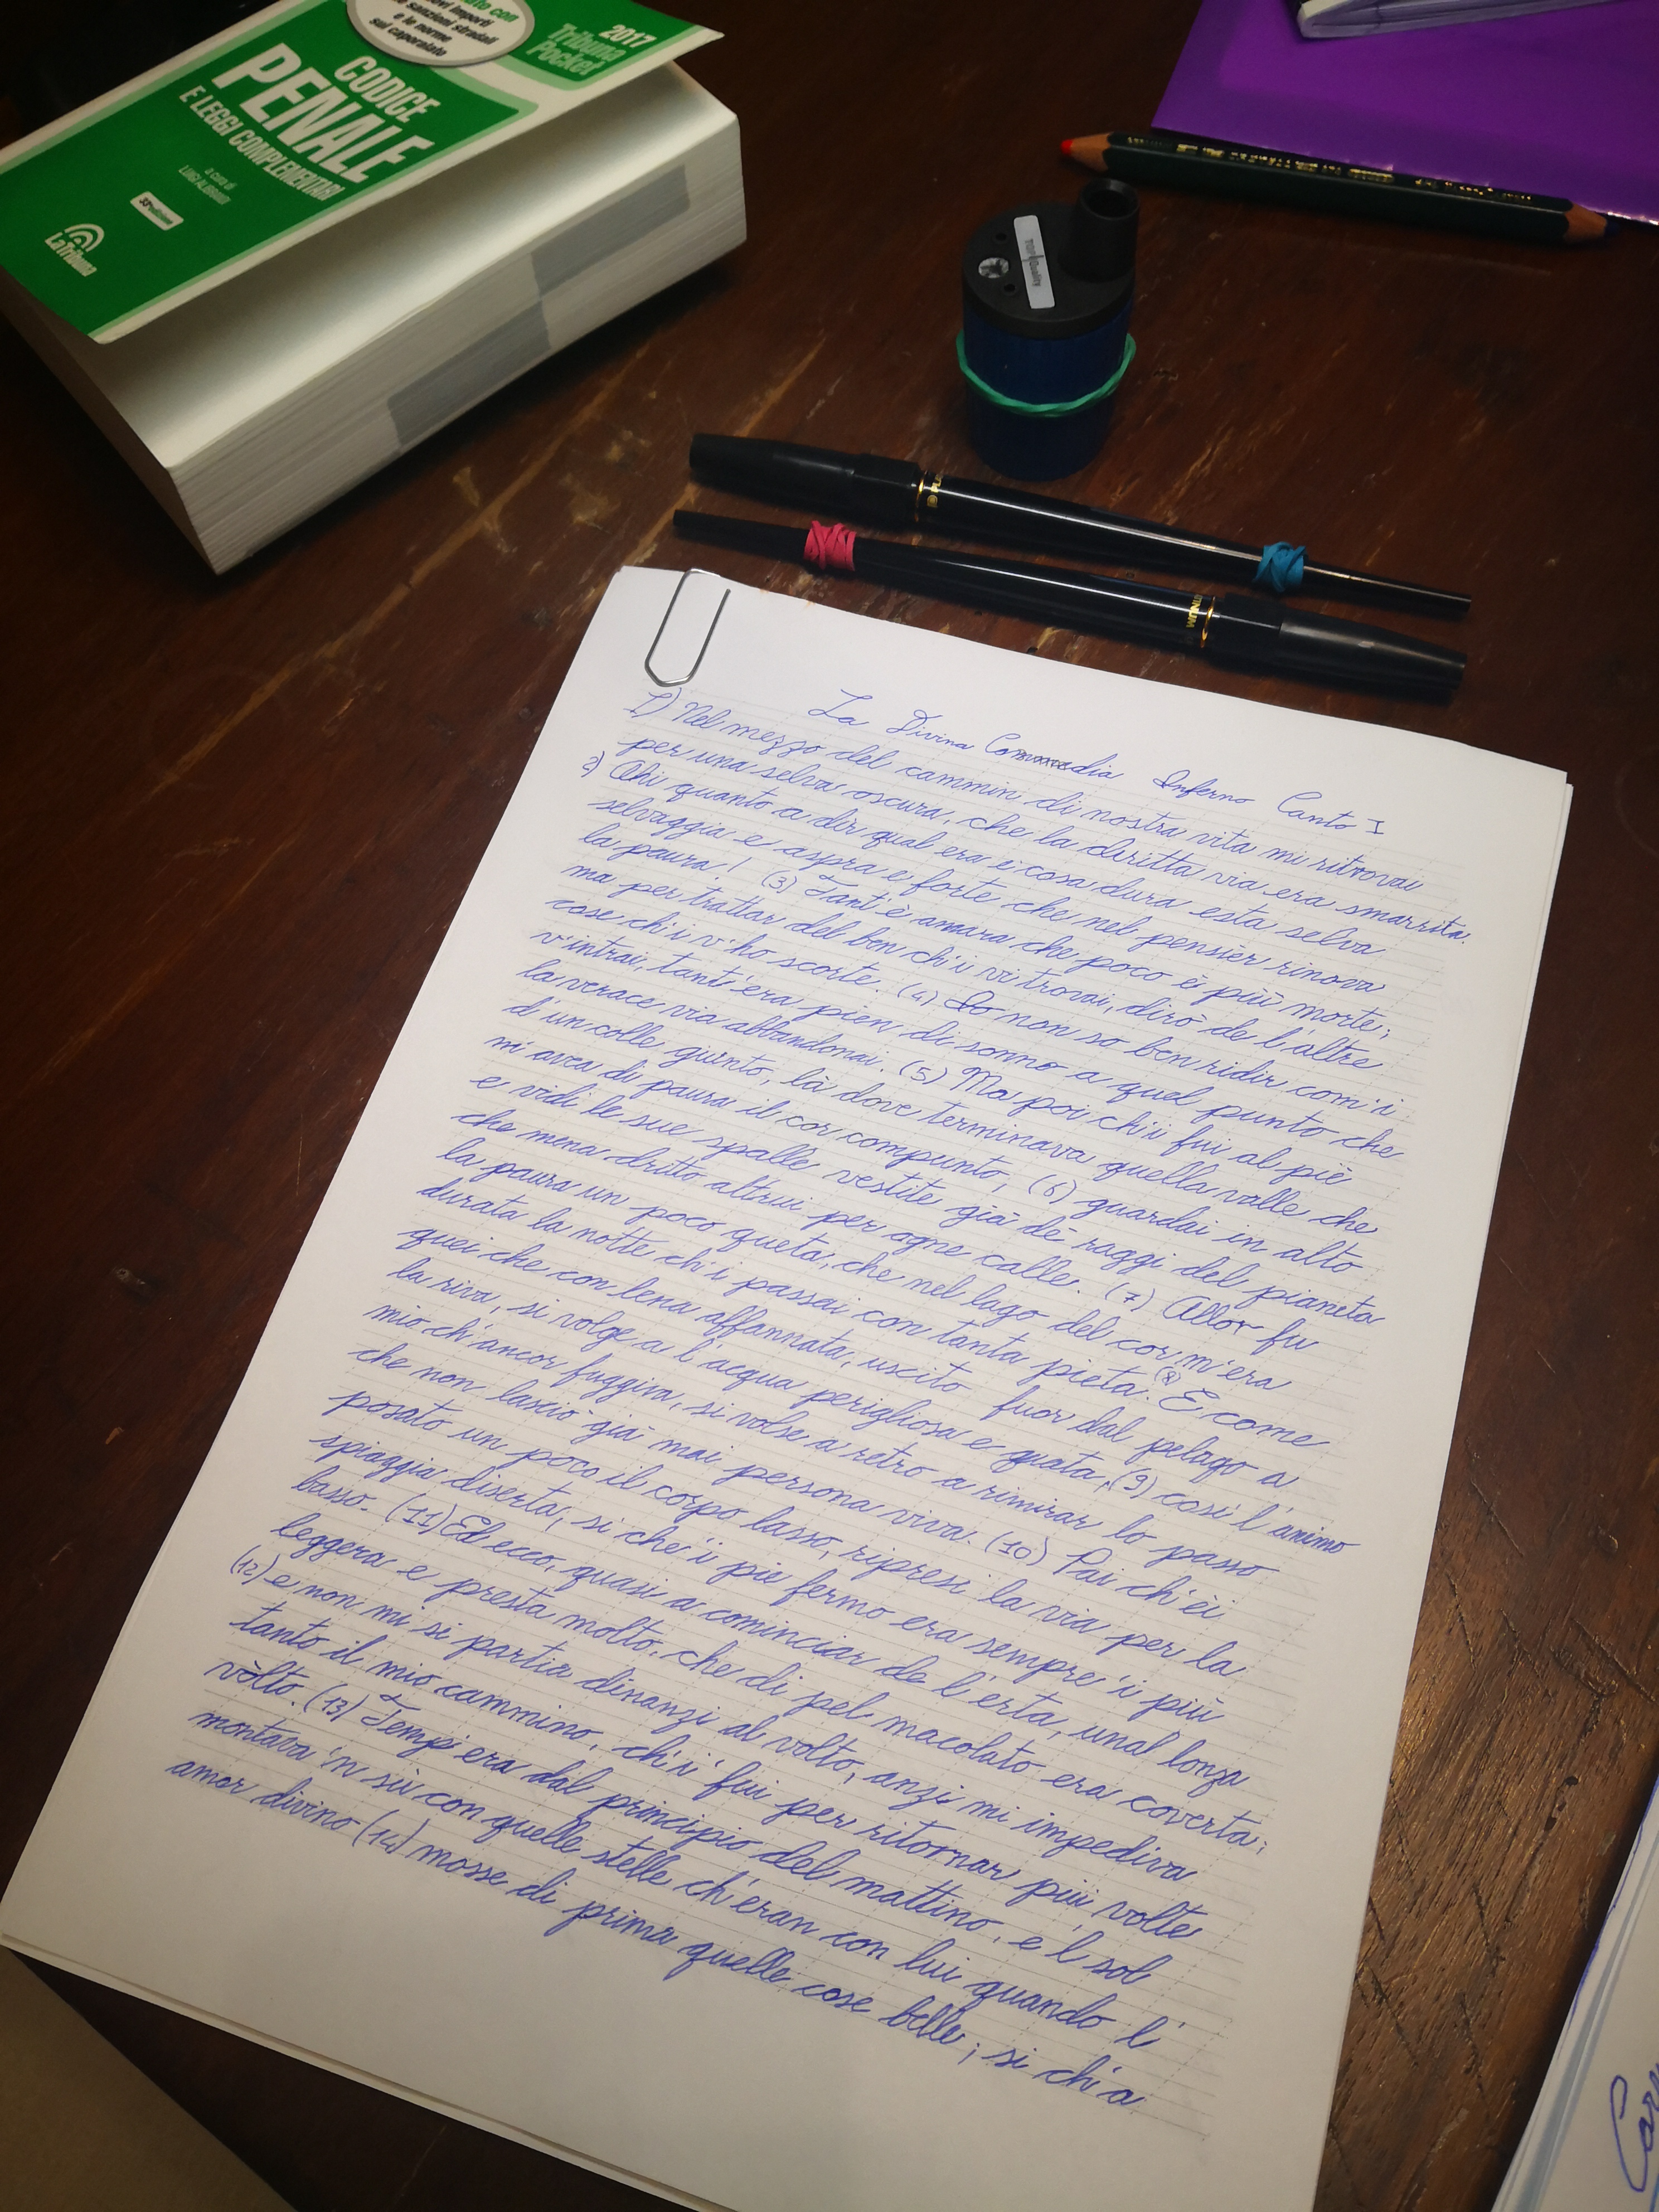 ato con
ovi importi
e sanzioni stradali
e le norme
sul caporalato
2017
Tribuna
Pocket
CODICE
PENALE
E LEGGI COMPLEMENTARI
a cura di
LUIGI ALIBRANDI
33ª edizione
LaTribuna
TOP Quality
PLA
TINUM
La Divina Commedia Inferno Canto I
1) Nel mezzo del cammin di nostra vita mi ritrovai
per una selva oscura, che la diritta via era smarrita.
2) Ahi quanto a dir qual era è cosa dura esta selva
selvaggia e aspra e forte che nel pensier rinova
la paura! (3) Tant'è amara che poco è più morte;
ma per trattar del ben ch'i vi trovai, dirò de l'altre
cose ch'i v'ho scorte. (4) Io non so ben ridir com'i
v'intrai, tant'era pien di sonno a quel punto che
la verace via abbandonai. (5) Ma poi ch'i fui al piè
d'un colle giunto, là dove terminava quella valle che
m'avea di paura il cor compunto, (6) guardai in alto
e vidi le sue spalle vestite già dè raggi del pianeta
che mena dritto altrui per ogne calle. (7) Allor fu
la paura un poco queta, che nel lago del cor m'era
durata la notte ch'i passai con tanta pieta. (8) E come
quei che con lena affannata, uscito fuor dal pelago a
la riva, si volge a l'acqua perigliosa e guata, (9) così l'animo
mio ch'ancor fuggiva, si volse a retro a rimirar lo passo
che non lasciò già mai persona viva. (10) Poi ch'èi
posato un poco il corpo lasso, ripresi la via per la
spiaggia diserta, sì che 'i piè fermo era sempre 'i più
basso. (11) Ed ecco, quasi a cominciar de l'erta, unal lonza
leggera e presta molto, che di pel macolato era coverta;
(12) e non mi si partia dinanzi al volto, anzi mi impediva
tanto il mio cammino, ch'i' fui per ritornar più volte
vòlto. (13) Temp'era dal principio del mattino, e'l sol
montava 'n sù con quelle stelle ch'eran con lui quando l'
amor divino (14) mosse di prima quelle cose belle; sì ch'a